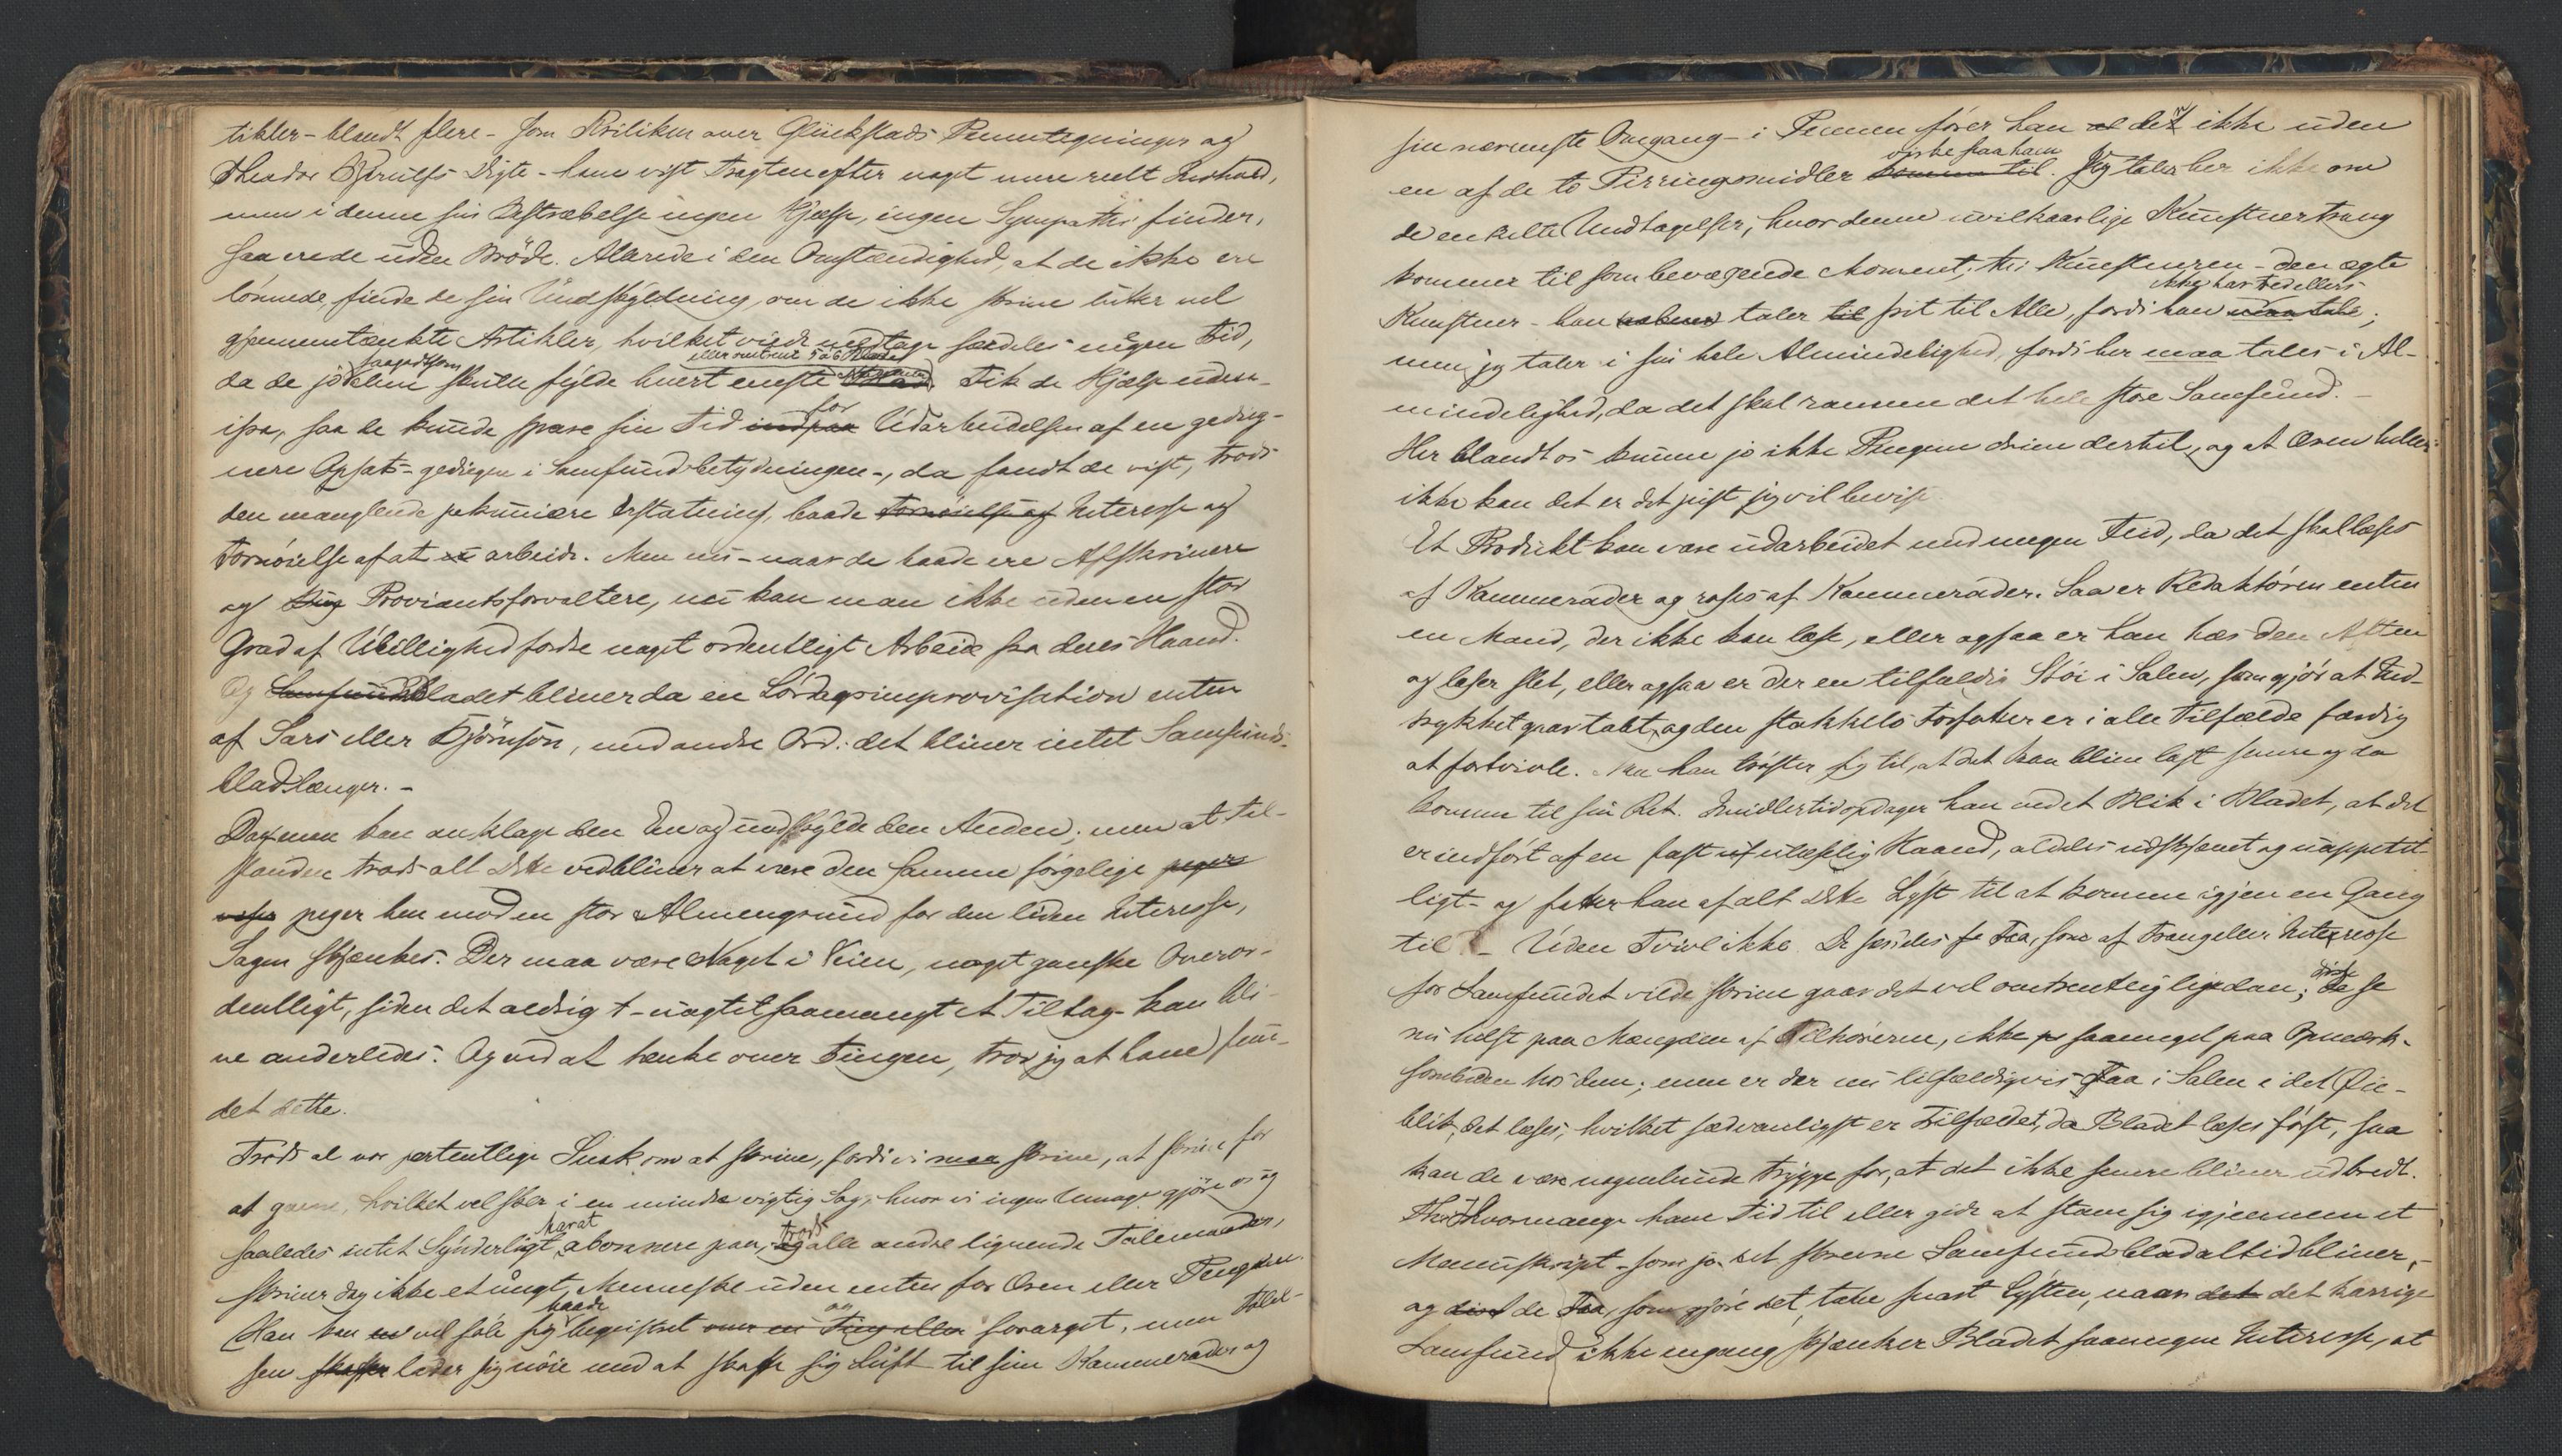 tikler – blandt flere – som Kritiken over Glückstads Pennetegninger og
Theodor Kjerulfs Digte – have vist Tragten efter noget mere reelt Indhold,
men i denne sin Bestræbelse ingen Hjælp, ingen Sympathi finder,
saa ere de uden Brøde. Allerede i den Omstændighed, at de ikke ere
lønnede, finde de sin Undskyldning, om de ikke skrive lutter vel
gjennemtænkte Artikler, hvilket vilde medtage særdeles megen Tid,
saagodtsom eller omtrent 5 à 6
da de jo alene skulle fylde hvert eneste Blad. Fik de Hjælp uden-
for
ifra, saa de kunde spare sin Tid indpaa Udarbeidelsen af en gedig-
nere Opsats – gedigen i Samfundsbetydningen –, da fandt de vist, trods
den manglende pekuniære Erstatning, baade Fornøielse og Interesse og
Fornøielse af at arbeide. Men nu – naar de baade ere Afskrivere
og Proviantsforvaltere, nu kan man ikke uden en stor
Grad af Ubillighed fordre noget ordentligt Arbeide fra deres Haand.
Og Samfundsbladet bliver da en Lørdagsimprovisation enten
af Sars eller Bjørnson, med andre Ord: det bliver intet Samfunds-
blad længer. –
Dog man kan anklage den Ene og undskylde den Anden; men at Til-
standen trods alt dette vedbliver at være den samme sørgelige peger
viser peger hen mod en stor Almengrund for den liden Interesse,
Sagen skjænkes. Der maa være Noget i Veien, noget ganske Overor-
dentligt, siden det aldrig – uagtet saamangt et Tiltag – kan bli-
ve anderledes. Og ved at tænke over Tingen, tror jeg at have fun-
det dette.
Trods al vor pertentlige Snak om at skrive, fordi vi maa skrive, at skrive for
at gavne, hvilket vel sker i en mindre vigtig Sag, hvor vi ingen Umage gjøre os og
Marat trods
saaledes intet Synderligt abonnere paa, og alle andre lignende Talemaader,
skriver dog ikke et ungt Menneske uden enten for Æren eller Pengene.
baade og
Han kan vel føle sig begeistret over en Ting eller forarget, men
sen skaffer lader sig nøie med at skaffe sig Luft til sine Kammerader og
sin nærmeste Omgang – i Pennen fører han det ikke uden
virke paa ham
en af de to Pirringsmidler komme til. Jeg taler her ikke om
de enkelte Undtagelser, hvor denne uvilkaarlige Kunstnertrang
kommer til som bevægende Moment; thi Kunstneren – den ægte
ikke har det ellers
Kunstner – han taler til frit til Alle, fordi han maa tale;
men jeg taler i sin hele Almindelighed, fordi her maa tales i Al-
mindelighed, da det skal ramme det hele store Samfund. –
Her blandt os kunne jo ikke Pengene drive dertil, og at Æren heller
ikke kan det er det just jeg vil bevise.
Et Produkt kan være udarbeidet med megen Flid, da det skal læses
af Kammerader og roses af Kammerader. Saa er Redaktøren enten
en Mand, der ikke kan læse, eller ogsaa er han hæs den Aften
og læser slet, eller ogsaa er der en tilfældig Støi i Salen, som gjør at Ind-
trykket gaar tabt, og den stakkels Forfatter er i alle Tilfælde færdig
at fortvivle. Men han trøster sig til, at det kan blive læst senere og da
komme til sin Ret. Imidlertid opdager han ved et Blik i Bladet, at det
er indført af en fast ulæselig Haand, aldeles udskjæmt og uappetit-
ligt – og fatter han af alt dette Lyst til at komme igjen en Gang
til? – Uden Tvivl ikke. De særdeles Faa, som af Trang eller Interesse
disse
for Samfundet vilde skrive gaar det vel omtrentlig ligedan; de se
nu helst paa Mængden af Tilhørerne, ikke saameget paa Opmærk-
somheden hos dem; men er der nu tilfældigvis Faa i Salen i det Øie-
blik, det læses, hvilket sædvanligst er Tilfældet, da Bladet læses først, saa
kan de være nogenlunde trygge for, at det ikke senere bliver udbredt.
Thi hvormange have Tid til eller gide at stave sig igjennem et
Manuskript – som jo det skrevne Samfundsblad altid bliver, –
og de Faa, som gjøre det, tabe snart Lysten, naar det det karrige
Samfund ikke engang skjænker Bladet saamegen Interesse, at